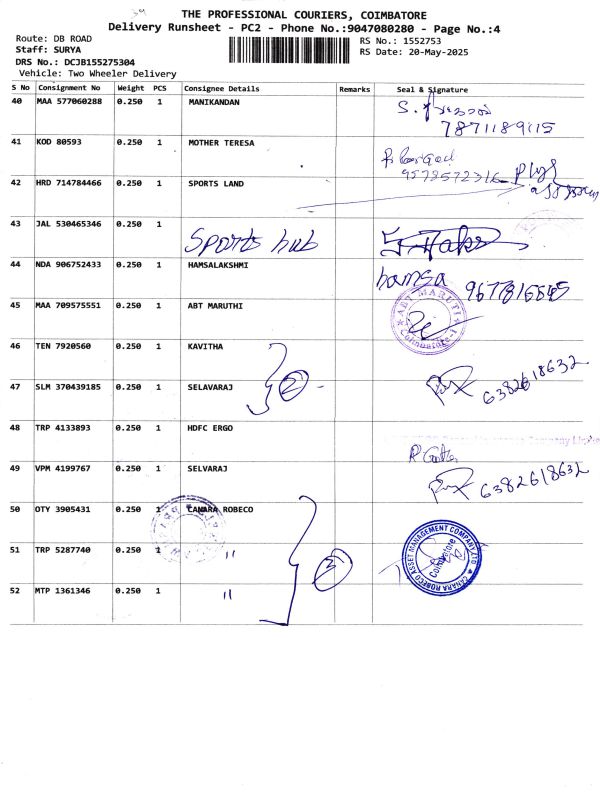 THE PROFESSIONAL COURIERS, COIMBATORE
Delivery Runsheet - PC2 - Phone No.:9047080280 - Page No.:4
Route: DB ROAD
Staff: SURYA
DRS No.: DCJB155275304
Vehicle: Two Wheeler Delivery
RS No.: 1552753
RS Date: 20-May-2025
S No Consignment No Weight PCS Consignee Details Remarks Seal & Signature
40 MAA 577060288 0.250 1 MANIKANDAN
7871189115
41 KOD 80593 0.250 1 MOTHER TERESA
9578572316
42 HRD 714784466 0.250 1 SPORTS LAND
43 JAL 530465346 0.250 1 Sports hub
44 NDA 906752433 0.250 1 HAMSALAKSHMI hamsa 9677816545
45 MAA 709575551 0.250 1 ABT MARUTHI
ABT MARUTI
Coimbatore-1
46 TEN 7920560 0.250 1 KAVITHA
2
47 SLM 370439185 0.250 1 SELAVARAJ 6382618632
48 TRP 4133893 0.250 1 HDFC ERGO
49 VPM 4199767 0.250 1 SELVARAJ 6382618632
50 OTY 3905431 0.250 1 CANARA ROBECO
51 TRP 5287740 0.250 1 "
3
CANARA ROBECO ASSET MANAGEMENT COMPANY LTD
Coimbatore
52 MTP 1361346 0.250 1 "